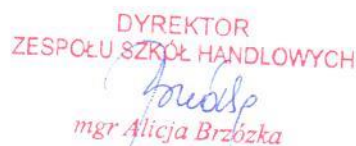 DYREKTOR
ZESPOŁU SZKÓŁ HANDLOWYCH
mgr Alicja Brzózka